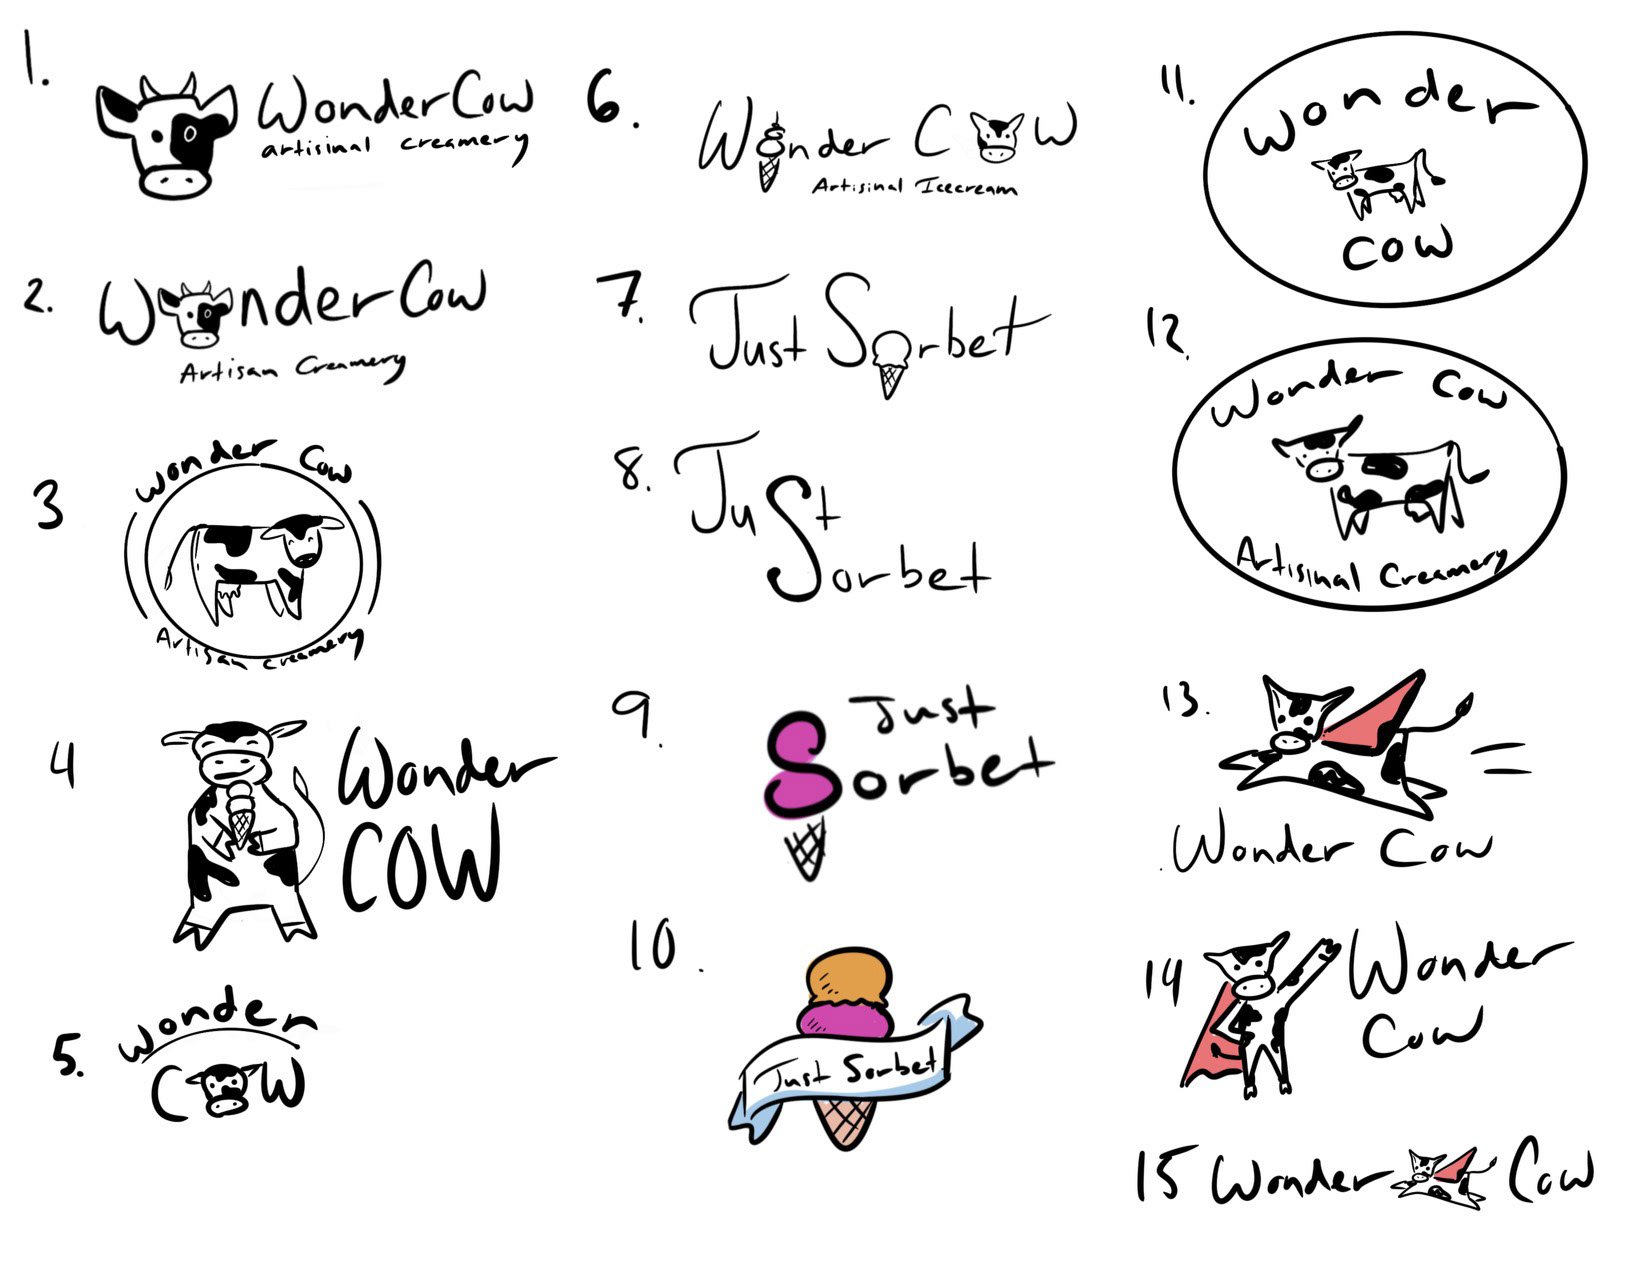 1.
WonderCow
artisinal creamery
2.
WonderCow
Artisan Creamery
3
Wonder Cow
Artisan Creamery
4
Wonder
COW
5.
Wonder
COW
6.
Wonder COW
Artisinal Icecream
7.
Just Sorbet
8.
JuSt
Sorbet
9.
Just
Sorbet
10.
Just Sorbet
11.
Wonder
COW
12.
Wonder Cow
Artisinal Creamery
13.
Wonder Cow
14
Wonder
Cow
15 Wonder Cow